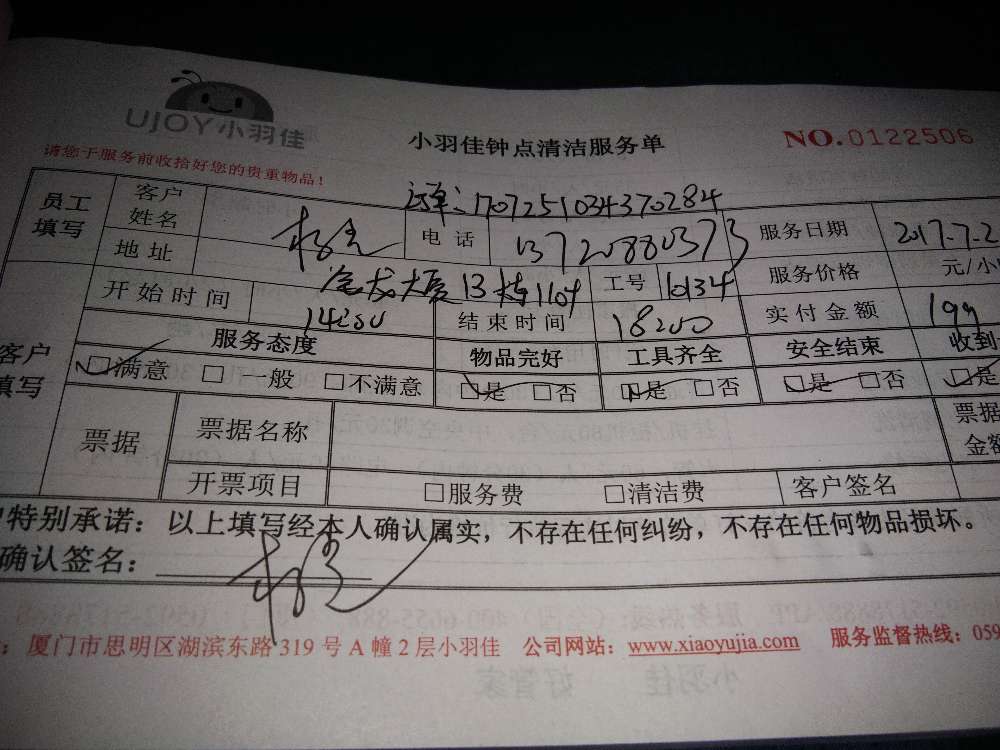 UJOY小羽佳
小羽佳钟点清洁服务单
NO.0122506
请您于服务前收拾好您的贵重物品!
员工填写
客户姓名
电话 13720880373
服务日期 2017-7-2
地址
13 1104
工号
服务价格 元/小
开始时间
结束时间
实付金额 199
客户填写
服务态度 物品完好 工具齐全 安全结束 收到
□满意 □一般 □不满意 □是 □否 □是 □否 □是 □否 □是
票据
票据名称
票据金额
开票项目 □服务费 □清洁费 客户签名
特别承诺：以上填写经本人确认属实，不存在任何纠纷，不存在任何物品损坏。
确认签名：
：厦门市思明区湖滨东路319号A幢2层小羽佳 公司网站：www.xiaoyujia.com 服务监督热线：059